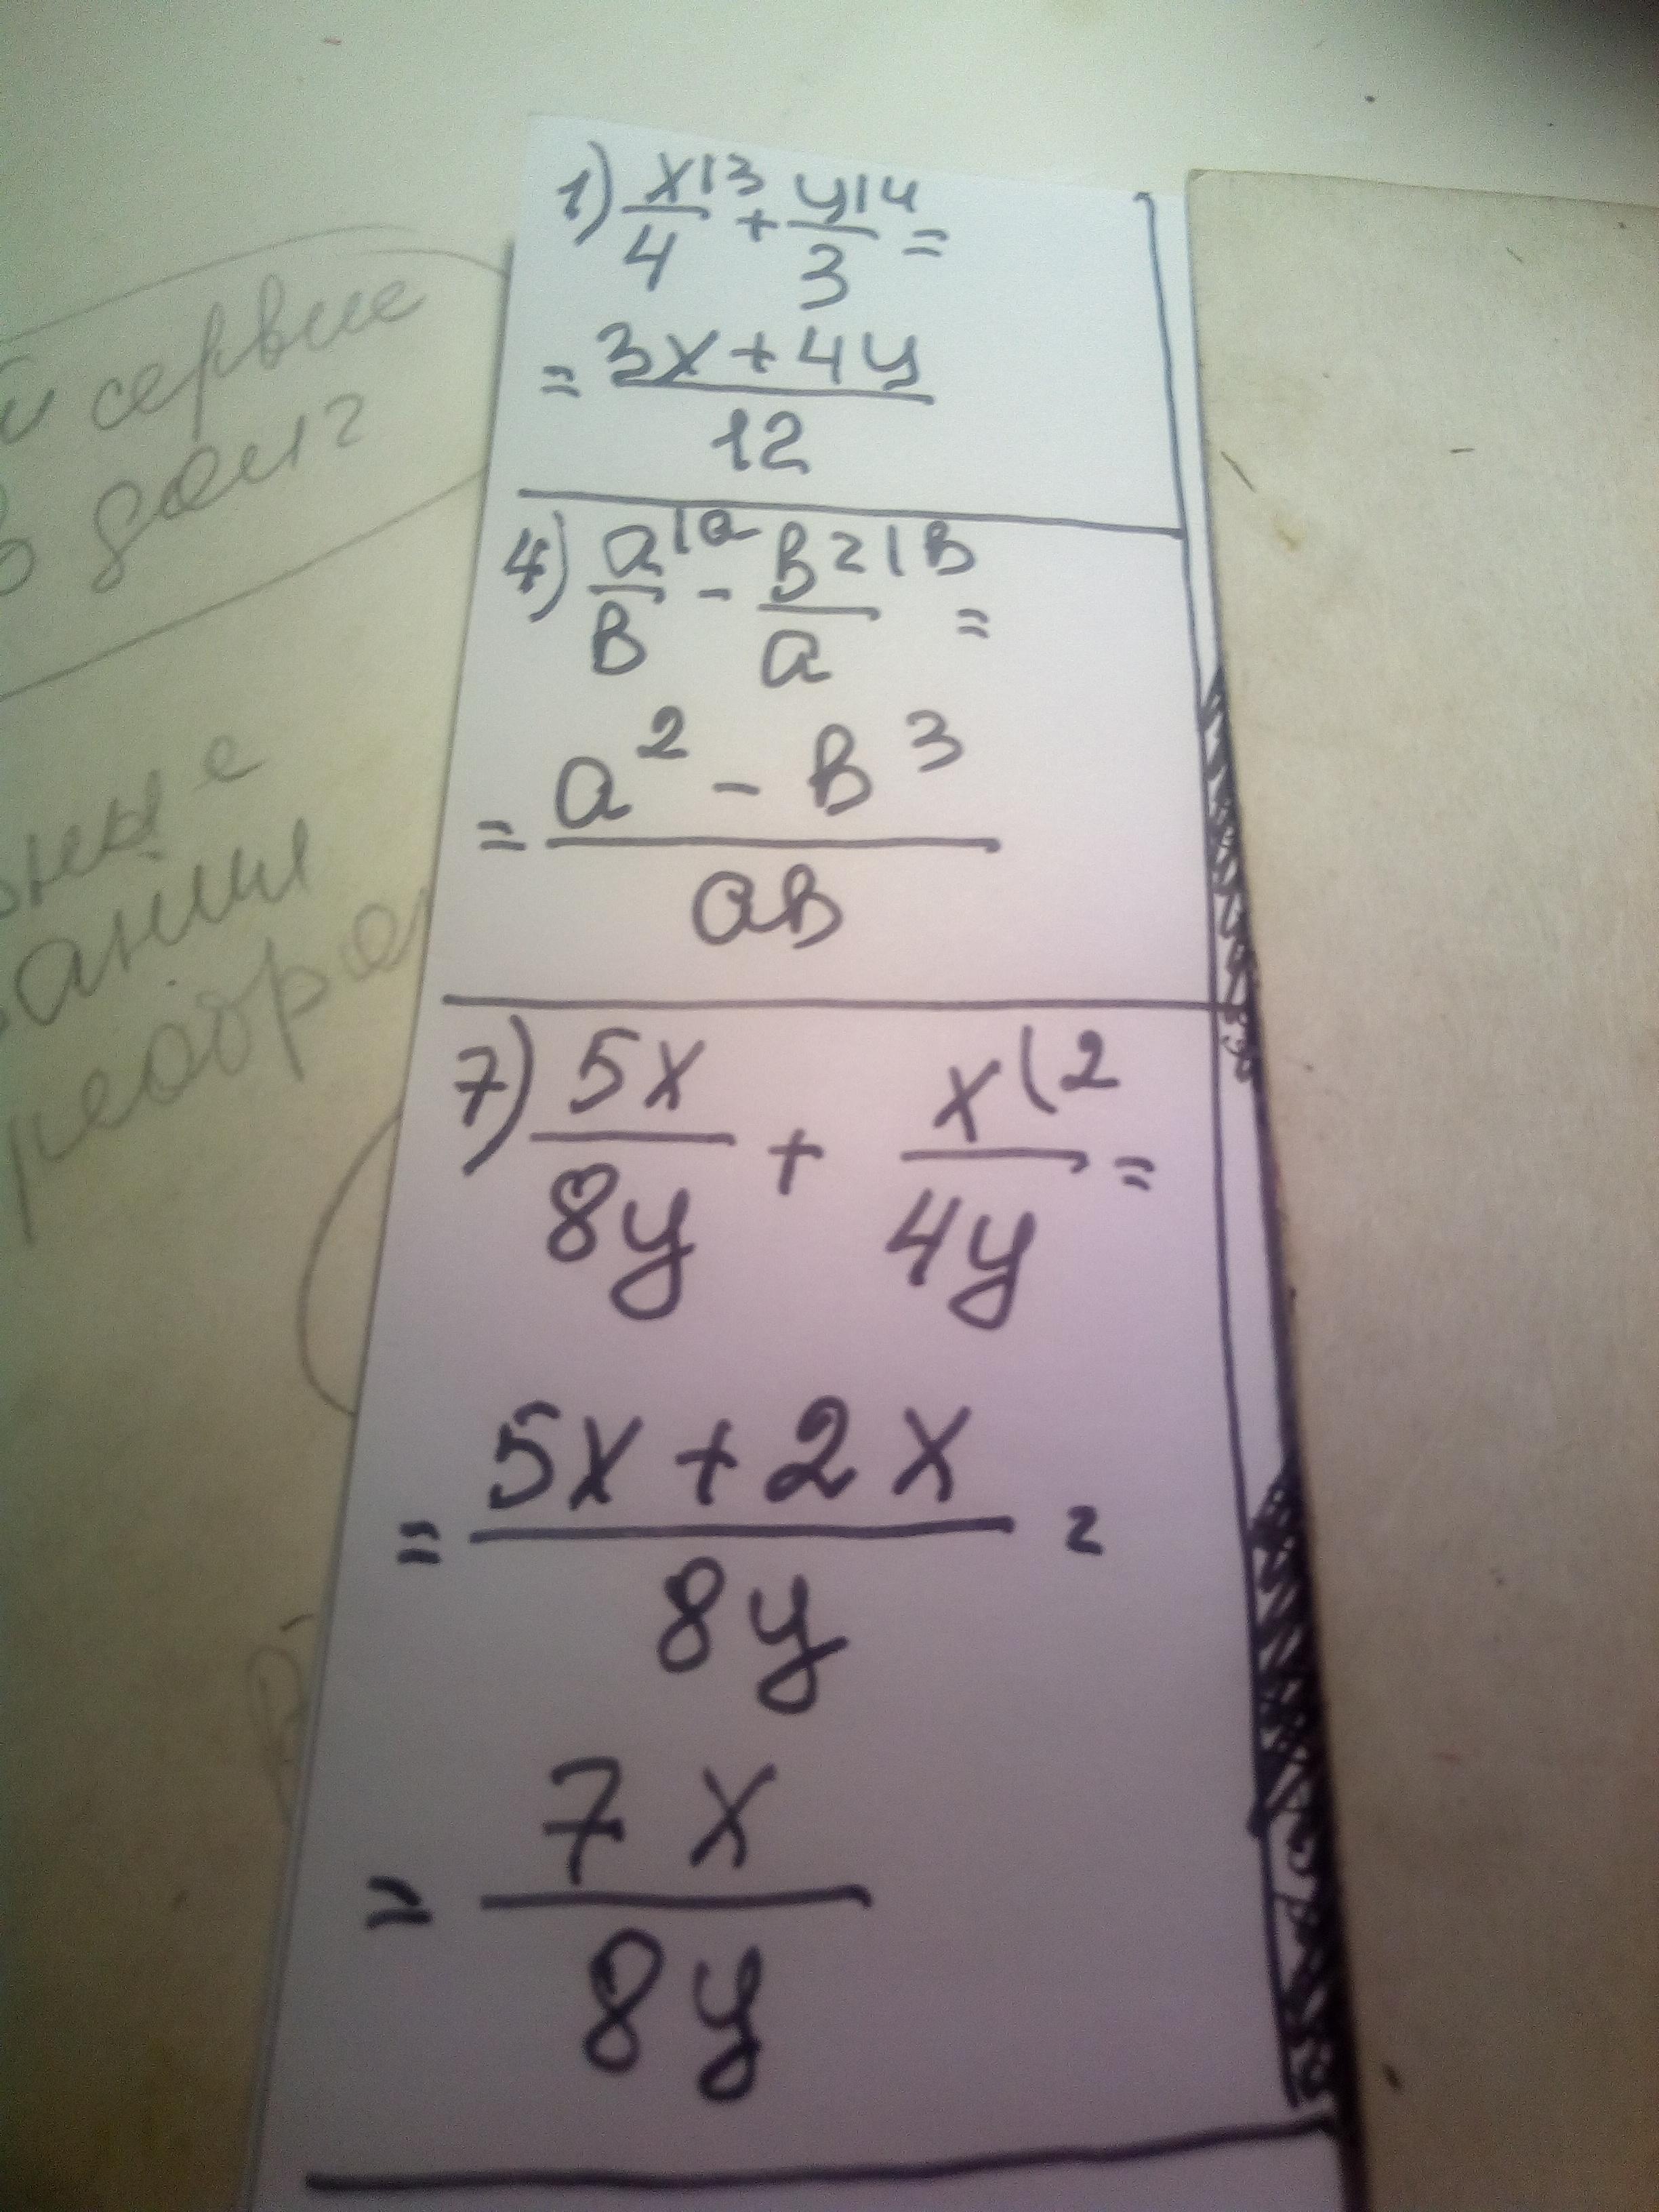 1) x|3/4 + y|4/3 =
= 3x + 4y/12
4) a|a/в - в²|в/a =
= a² - в³/aв
7) 5x/8y + x|2/4y =
= 5x + 2x/8y =
= 7x/8y
сервис